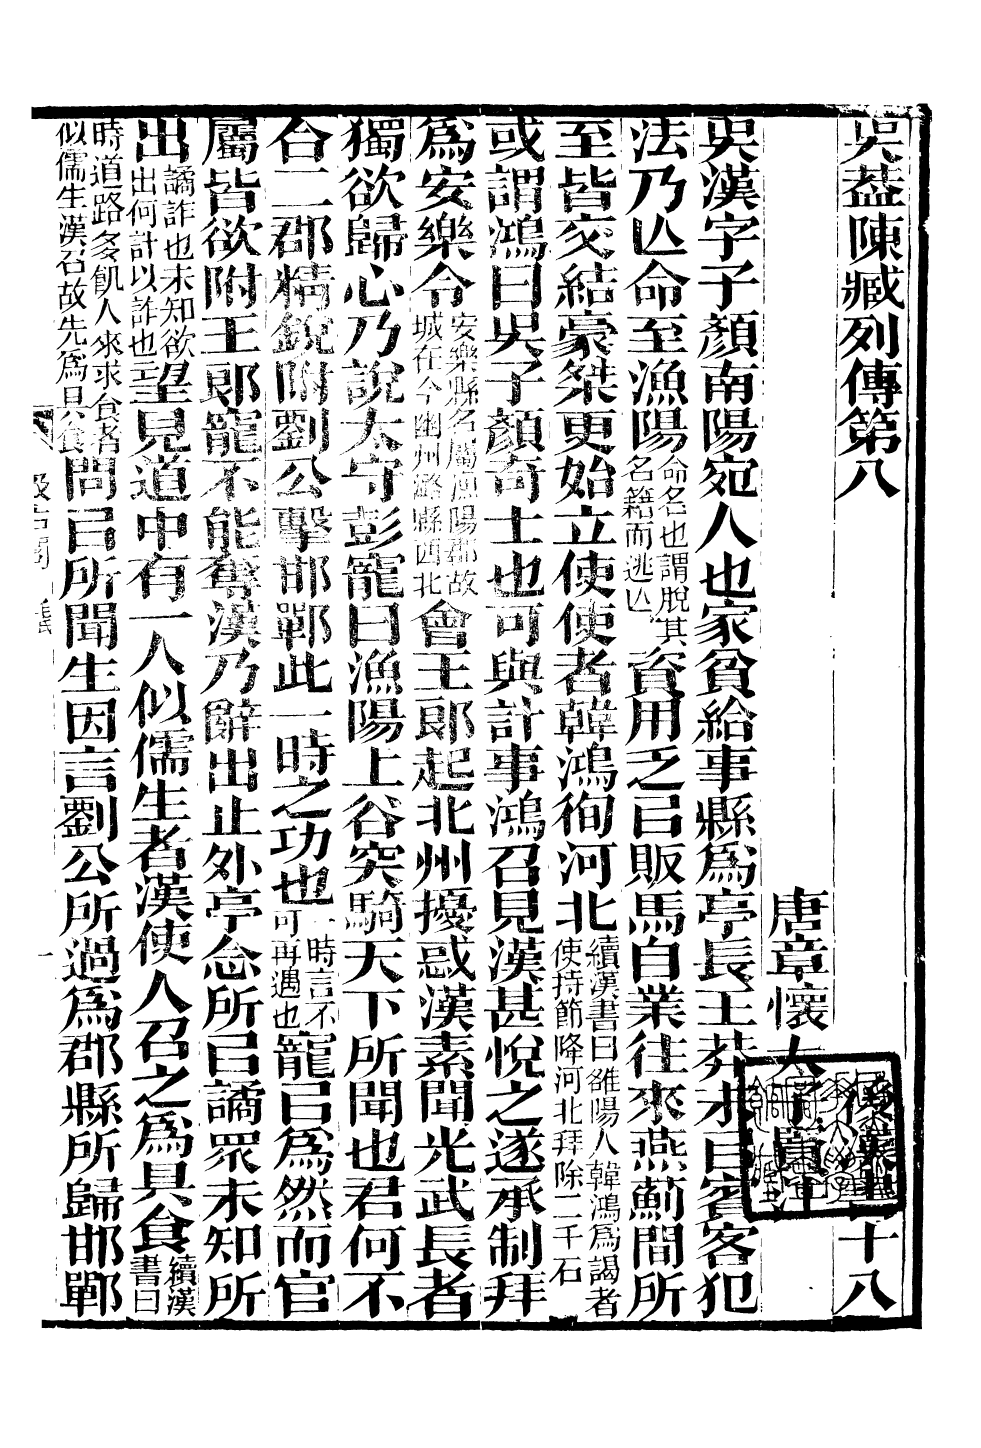 吳葢陳臧列傳第八 後漢書十八
唐章懷太子賢注
吳漢字子顏南陽宛人也家貧給事縣爲亭長王莽末㠯賓客犯
法乃亾命至漁陽命名也謂脫其名籍而逃亾資用乏㠯販馬自業往來燕薊間所
至皆交結豪桀更始立使使者韓鴻徇河北續漢書曰雒陽人韓鴻爲謁者使持節降河北拜除二千石
或謂鴻曰吳子顏奇士也可與計事鴻召見漢甚悅之遂承制拜
爲安樂令安樂縣名屬漁陽郡故城在今幽州潞縣西北會王郎起北州擾惑漢素聞光武長者
獨欲歸心乃說太守彭寵曰漁陽上谷突騎天下所聞也君何不
合二郡精銳附劉公擊邯鄲此一時之功也一時言不可再遇也寵㠯爲然而官
屬皆欲附王郎寵不能奪漢乃辭出止外亭念所㠯譎眾未知所
出譎詐也未知欲出何計以詐也望見道中有一人似儒生者漢使人召之爲具食續漢書曰
時道路多飢人來求食者似儒生漢召故先爲具食問㠯所聞生因言劉公所過爲郡縣所歸邯鄲
汲古閣
一